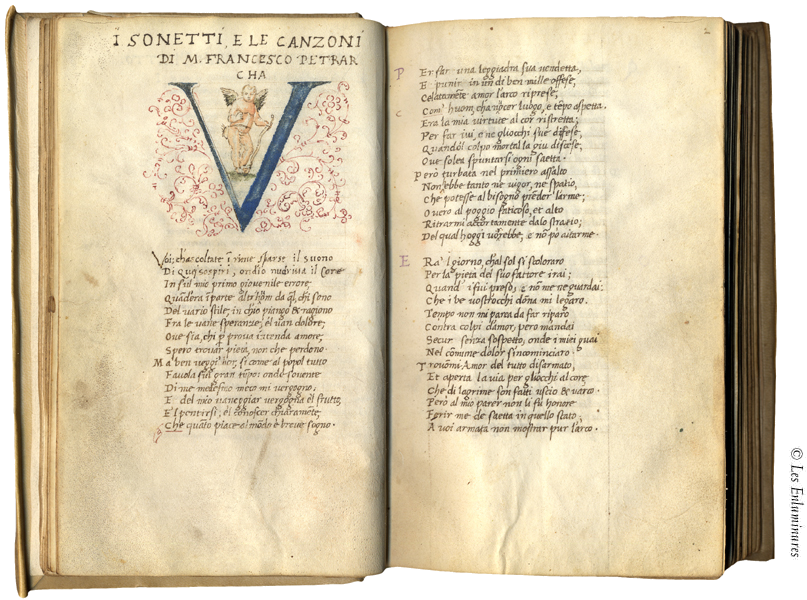 I SONETTI, E LE CANZONI
DI M. FRANCESCO PETRAR
CHA
V
Voi, ch'ascoltate ī rime sparse il suono
Di quei sospiri, ond'io nudriva il core
In sul mio primo giovenile errore;
Quād'era ī parte altr'hom da q̄l, ch'i sono
Del vario stile, in ch'io piango & ragiono
Fra le vane speranze, e'l van dolore;
Ove sia, chi p̱ prova intenda amore,
Spero trovar pieta, non che perdono.
Ma ben veggi'hor, si come al popol tutto
Favola fui gran tēpo: onde sovente
Di me medesmo meco mi vergogno.
E del mio vaneggiar vergogna e'l frutto,
E'l pentirsi; e'l conoscer chiaramēte,
Che quāto piace al mōdo è breve sogno.
2
Per far una leggiadra sua vendetta,
E punir in un di ben mille offese;
Celatamēte amor l'arco riprese;
Com' huom, cha nocer luogo, e tēpo aspetta.
Era la mia virtute al cor ristretta;
Per far ivi, e ne gliocchi sue difese;
Quando'l colpo mortal la giu discese,
Ove solea spuntarsi ogni saetta.
Però turbata nel primiero assalto
Non hebbe tanto ne vigor, ne spatio,
Che potesse al bisogno prēder l'arme;
Overo al poggio faticoso, et alto
Ritrarmi accortamente da lo stratio;
Del qual hoggi vorrebbe, e nō pò aitarme.
Era'l giorno, ch'al sol si scoloraro
Per la pieta del suo fattore i rai;
Quand' i fui preso, e nō me ne guardai:
Che i be vostr'occhi dōna mi legaro.
Tempo non mi parea da far riparo
Contra colpi d'amor, pero mandai
Secur senza sospetto, onde i miei guai
Nel cōmune dolor s'incominciaro.
Trovōmi Amor del tutto disarmato,
Et aperta la via per gliocchi al core
Che di lagrime son fatti uscio & varco.
Però al mio parer non li fu honore
Ferir me de saetta in quello stato;
A voi armata non mostrar pur l'arco.
© Les Enluminures